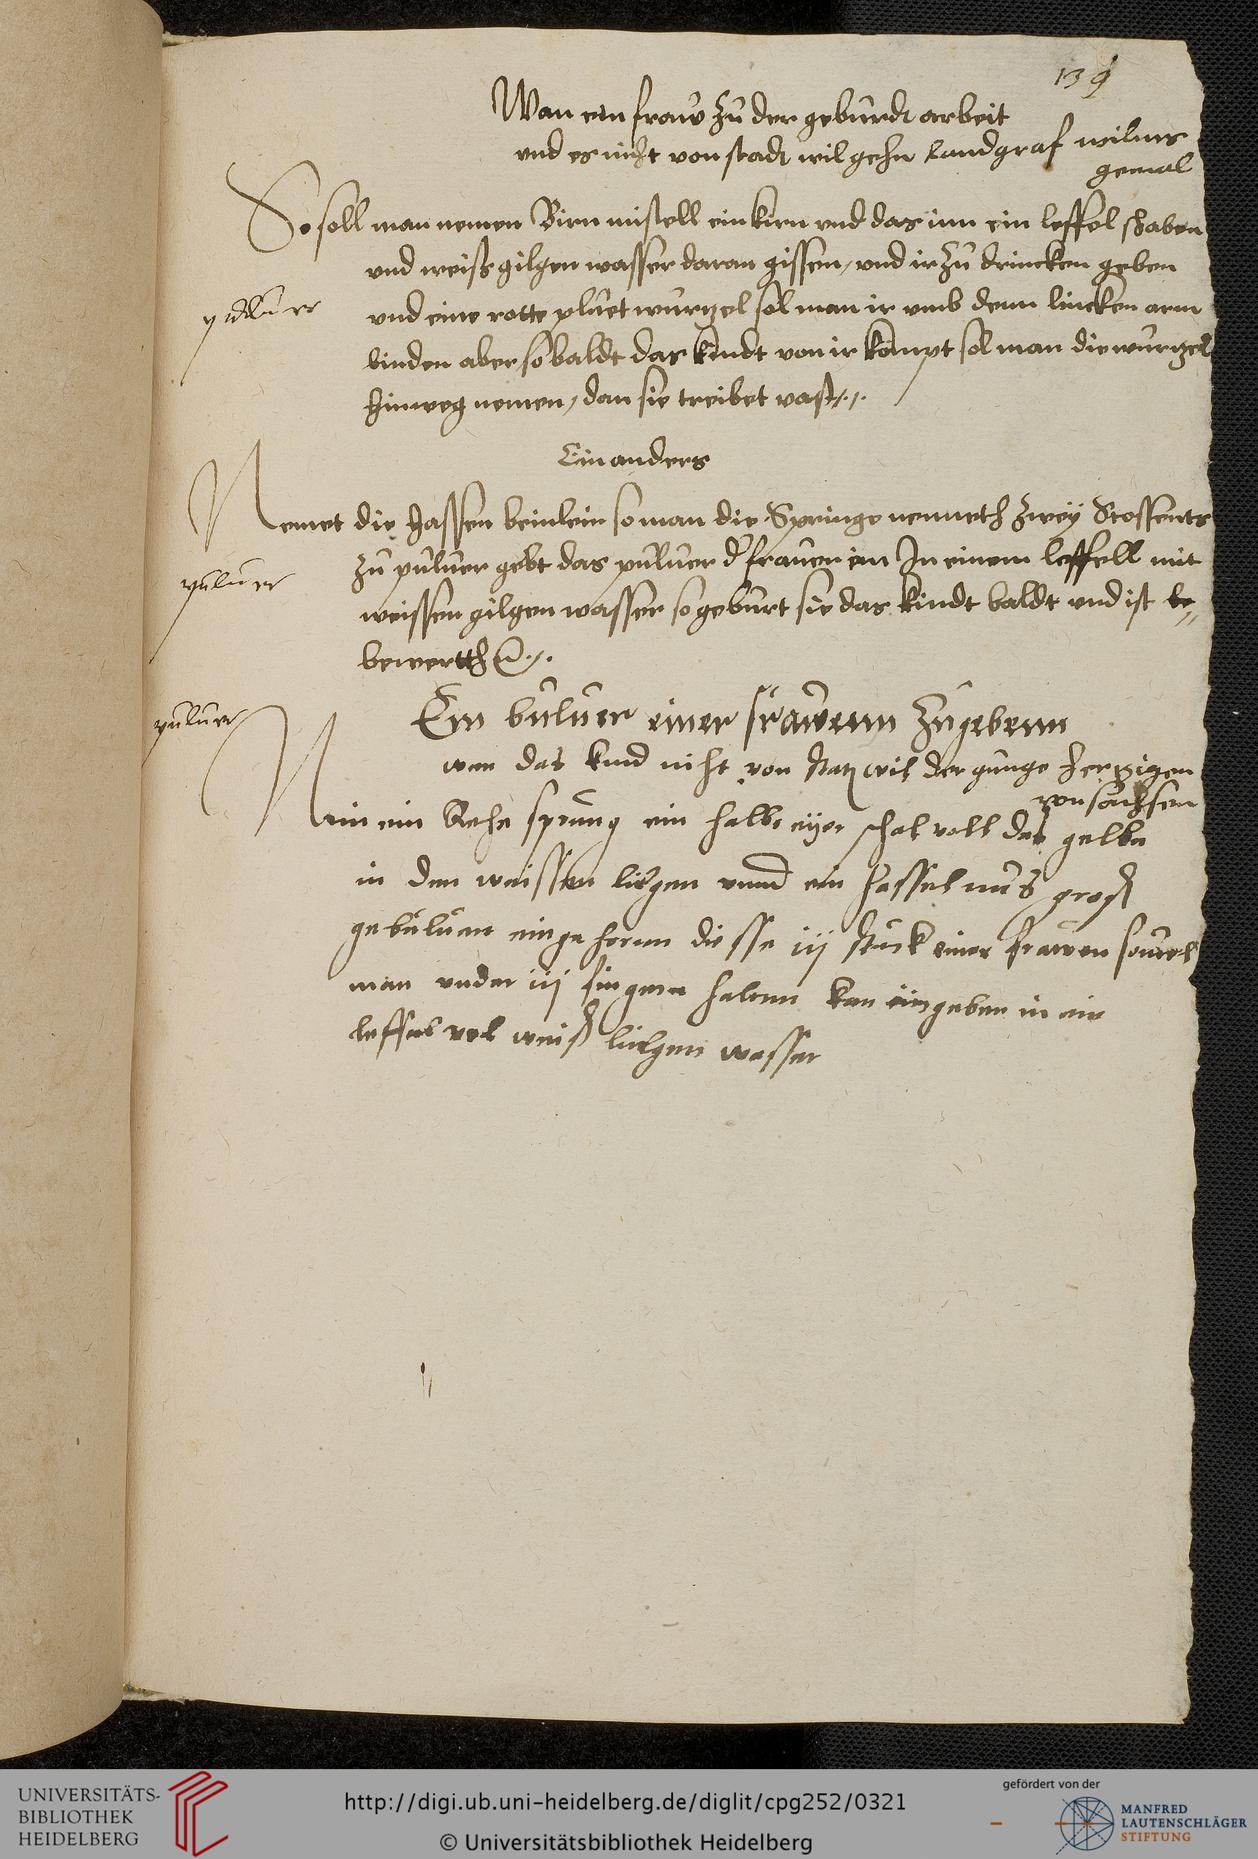 139
Wan ein fraw zu der geburdt arbeit
und es nicht von stadt wil gehn Landgraf wilms
gemal
So soll man nemen Birn mistell ein kirn und das inn ein leffel schaben
und weiss gilgen wasser daran gissen, und ir zu drincken geben
puluer
und eine rotte pluet wurtzel sol man ir umb denn lincken arm
binden aber so baldt das kindt von ir kompt sol man die wurtzel
hinweg nemen, dan sie treibet vast
Ein anders
Nemet die hassen beinlein so man die Springe nenneth zwey Stossents
zu puluer gebt das puluer der frauen ein In einem leffell mit
puluer
weissen gilgen wasser so geburt sie das kindt baldt und ist be
bewertth
puluer
Ein buluer einer frawenn zugebenn
wen das kind nicht von statz wil der gunge hertzigen
von sachsen
Nim ein Rehe sprung ein halbe eyer schal voll das gelbe
in den weissen lilgen unnd ein hasselnus groß
gebuluert eingehorn diesse iij stuck einer frawen souiel
man under iij fingern haltenn kan eingeben in ein
leffel vol weiß lielgen wasser
UNIVERSITÄTS-
BIBLIOTHEK
HEIDELBERG
http://digi.ub.uni-heidelberg.de/diglit/cpg252/0321
© Universitätsbibliothek Heidelberg
gefördert von der
MANFRED
LAUTENSCHLÄGER
STIFTUNG